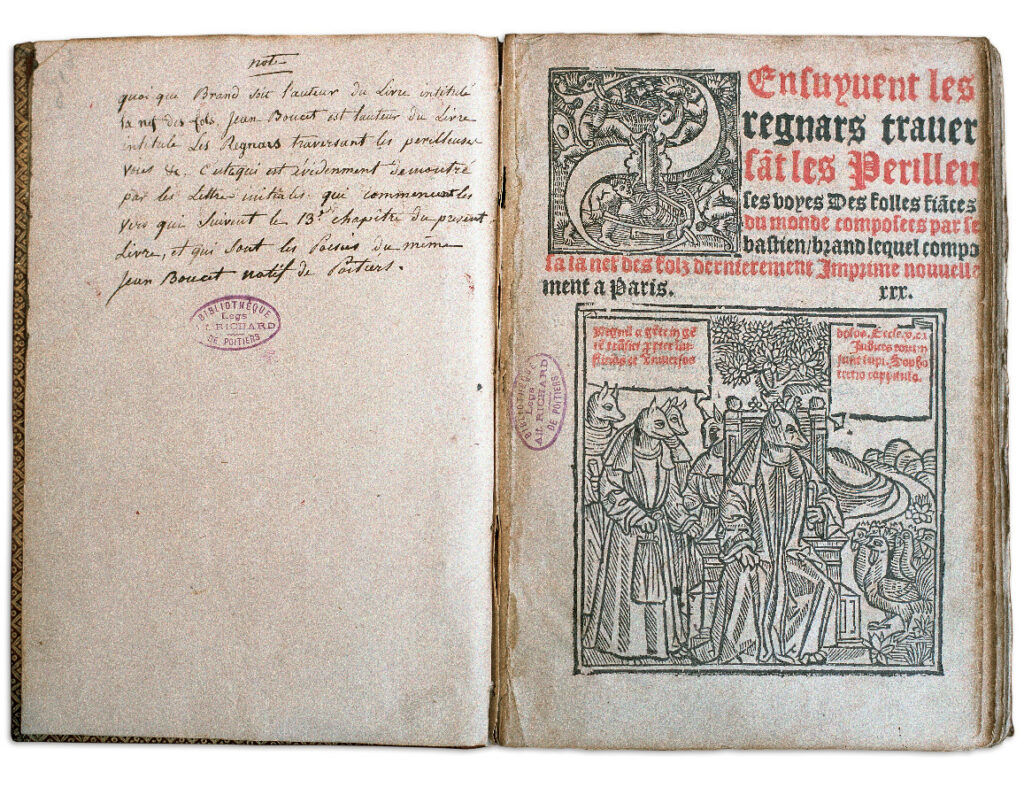 note
quoi que Brand soit l'auteur du Livre intitulé
la nef des fols, Jean Boucet est l'auteur du Livre
intitulé Les Regnars traversant les perilleuses
voies &c. C'est a qui est évidenment demontré
par les Lettres initiales qui commencent les
vers qui suivent le 13e chapitre du present
Livre, et qui sont les Poesies du même
Jean Boucet natif de Poitiers.
BIBLIOTHÈQUE
Legs
A. RICHARD
DE POITIERS
S Ensuyuent les
regnars trauer
sāt les Perilleu
ses voyes Des folles fiāces
du monde composees par se
bastien/brand lequel compo
sa la nef des folz dernierement Imprime nouuelle
ment a Paris. xxx.
BIBLIOTHÈQUE
Legs
A. RICHARD
DE POITIERS